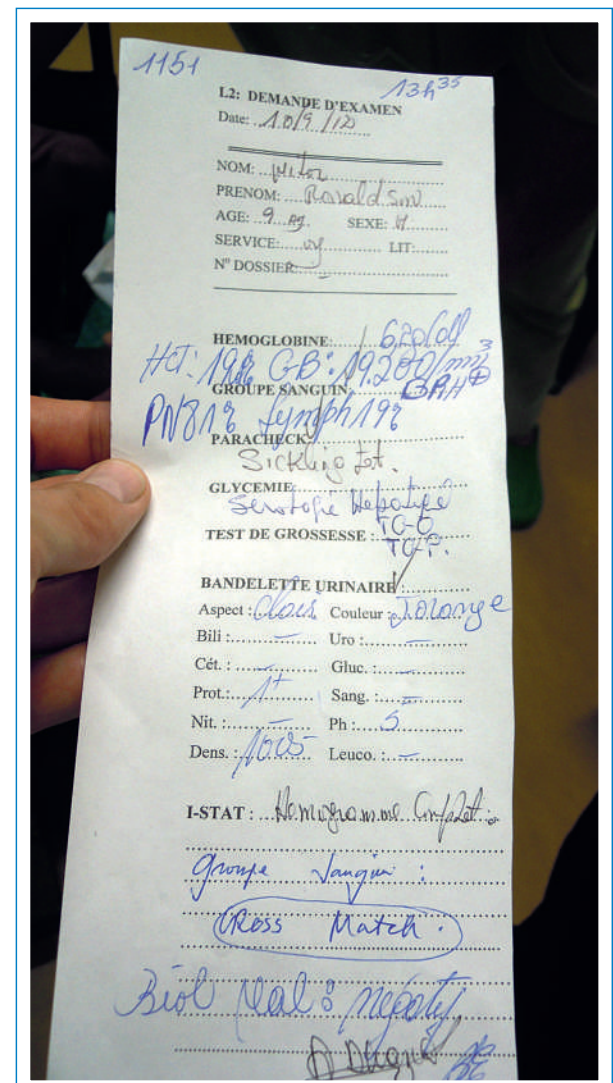 1151
13h35
L2: DEMANDE D'EXAMEN
Date: 10/9/12
NOM:
PRENOM: Ronaldson
AGE: 9 SEXE:
SERVICE: LIT:
N° DOSSIER:
HEMOGLOBINE: 6,2g/dl
HCT: 19% GB: 19.200/mm3
GROUPE SANGUIN: BRH+
PN 81% Lymph 19%
PARACHECK:
Sickling tet.
GLYCEMIE:
Serologie Hepatique
TEST DE GROSSESSE: TG-O
TG-P.
BANDELETTE URINAIRE:
Aspect: Clair Couleur: J.Orange
Bili: - Uro: -
Cét.: - Gluc.: -
Prot.: 1+ Sang.: -
Nit.: - Ph: 5
Dens.: 1005 Leuco.: -
I-STAT: Hemogramme Complet
Groupe Sanguin:
Cross Match.
Biol Mal: négatif